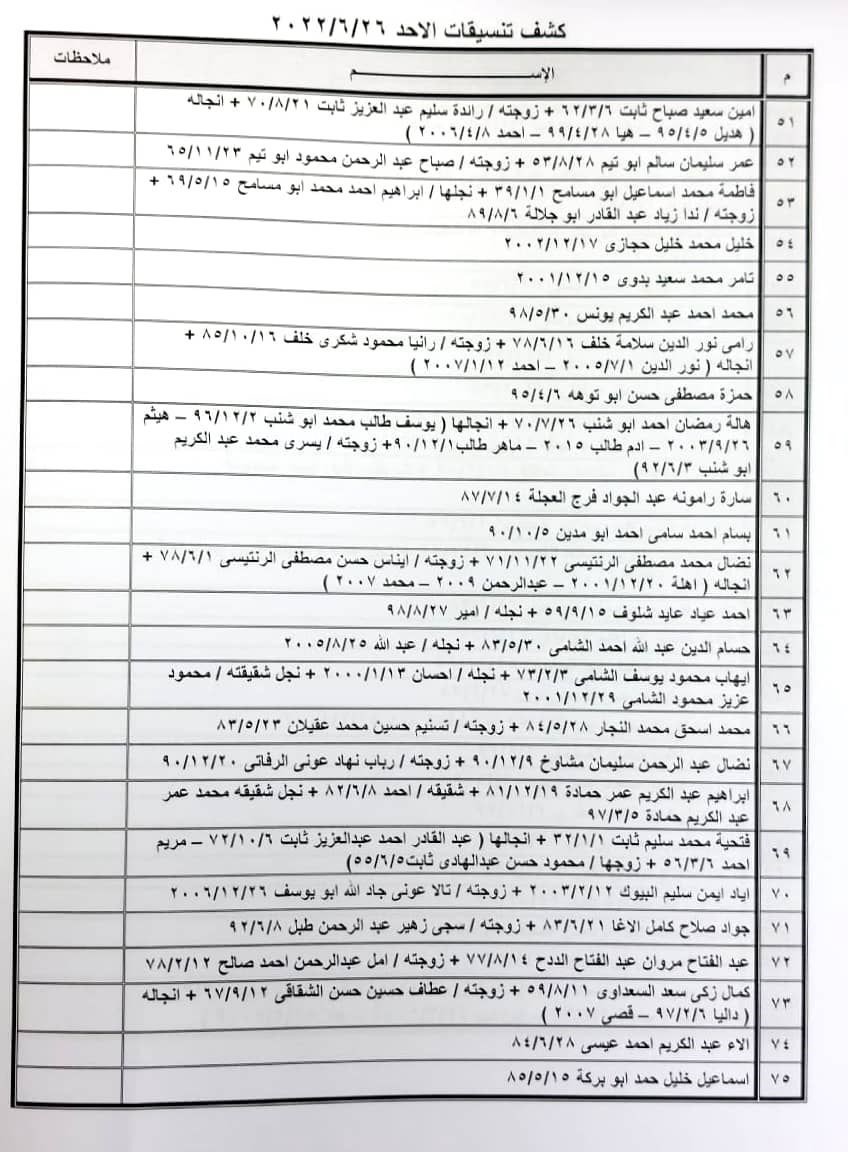 كشف تنسيقات الاحد ٢٠٢٢/٦/٢٦
م الإســـــــم ملاحظات
٥١ امين سعيد صباح ثابت ٦٢/٣/٦ + زوجته / رائدة سليم عبد العزيز ثابت ٧٠/٨/٢١ + انجاله
( هديل ٩٥/٤/٥ – هيا ٩٩/٤/٢٨ – احمد ٢٠٠٦/٤/٨ )
٥٢ عمر سليمان سالم ابو تيم ٥٣/٨/٢٨ + زوجته / صباح عبد الرحمن محمود ابو تيم ٦٥/١١/٢٣
٥٣ فاطمة محمد اسماعيل ابو مسامح ٣٩/١/١ + نجلها / ابراهيم احمد محمد ابو مسامح ٦٩/٥/١٥ +
زوجته / ندا زياد عبد القادر ابو جلالة ٨٩/٨/٦
٥٤ خليل محمد خليل حجازى ٢٠٠٢/١٢/١٧
٥٥ تامر محمد سعيد بدوى ٢٠٠١/١٢/١٥
٥٦ محمد احمد عبد الكريم يونس ٩٨/٥/٣٠
٥٧ رامى نور الدين سلامة خلف ٧٨/٦/١٦ + زوجته / رانيا محمود شكرى خلف ٨٥/١٠/١٦ +
انجاله ( نور الدين ٢٠٠٥/٧/١ – احمد ٢٠٠٧/١/١٢ )
٥٨ حمزة مصطفى حسن ابو توهه ٩٥/٤/٦
٥٩ هالة رمضان احمد ابو شنب ٧٠/٧/٢٦ + انجالها ( يوسف طالب محمد ابو شنب ٩٦/١٢/٢ – هيثم
٢٠٠٣/٩/٢٦ – ادم طالب ٢٠١٥ – ماهر طالب ٩٠/١٢/١+ زوجته / يسرى محمد عبد الكريم
ابو شنب ٩٢/٦/٣)
٦٠ سارة رامونه عبد الجواد فرج العجلة ٨٧/٧/١٤
٦١ بسام احمد سامى احمد ابو مدين ٩٠/١٠/٥
٦٢ نضال محمد مصطفى الرنتيسى ٧١/١١/٢٢ + زوجته / ايناس حسن مصطفى الرنتيسى ٧٨/٦/١ +
انجاله ( اهلة ٢٠٠١/١٢/٢٠ – عبدالرحمن ٢٠٠٩ – محمد ٢٠٠٧ )
٦٣ احمد عياد عايد شلوف ٥٩/٩/١٥ + نجله / امير ٩٨/٨/٢٧
٦٤ حسام الدين عبد الله احمد الشامى ٨٣/٥/٣٠ + نجله / عبد الله ٢٠٠٥/٨/٢٥
٦٥ ايهاب محمود يوسف الشامى ٧٣/٢/٣ + نجله / احسان ٢٠٠٠/١/١٣ + نجل شقيقته / محمود
عزيز محمود الشامى ٢٠٠١/١٢/٢٩
٦٦ محمد اسحق محمد النجار ٨٤/٥/٢٨ + زوجته / تسنيم حسين محمد عقيلان ٨٣/٥/٢٣
٦٧ نضال عبد الرحمن سليمان مشاوخ ٩٠/١٢/٩ + زوجته / رباب نهاد عونى الرفاتى ٩٠/١٢/٢٠
٦٨ ابراهيم عبد الكريم عمر حمادة ٨١/١٢/١٩ + شقيقه / احمد ٨٢/٦/٨ + نجل شقيقه محمد عمر
عبد الكريم حمادة ٩٧/٣/٥
٦٩ فتحية محمد سليم ثابت ٣٢/١/١ + انجالها ( عبد القادر احمد عبدالعزيز ثابت ٧٢/١٠/٦ – مريم
احمد ٥٦/٣/٦ + زوجها / محمود حسن عبدالهادى ثابت٥٥/٦/٥)
٧٠ اياد ايمن سليم البيوك ٢٠٠٣/٢/١٢ + زوجته / تالا عونى جاد الله ابو يوسف ٢٠٠٦/١٢/٢٦
٧١ جواد صلاح كامل الاغا ٨٣/٦/٢١ + زوجته / سجى زهير عبد الرحمن طبل ٩٢/٦/٨
٧٢ عبد الفتاح مروان عبد الفتاح الددح ٧٧/٨/١٤ + زوجته / امل عبدالرحمن احمد صالح ٧٨/٢/١٢
٧٣ كمال زكى سعد السعداوى ٥٩/٨/١١ + زوجته / عطاف حسين حسن الشقاقى ٦٧/٩/١٢ + انجاله
( داليا ٩٧/٢/٦ – قصى ٢٠٠٧ )
٧٤ الاء عبد الكريم احمد عيسى ٨٤/٦/٢٨
٧٥ اسماعيل خليل حمد ابو بركة ٨٥/٥/١٥